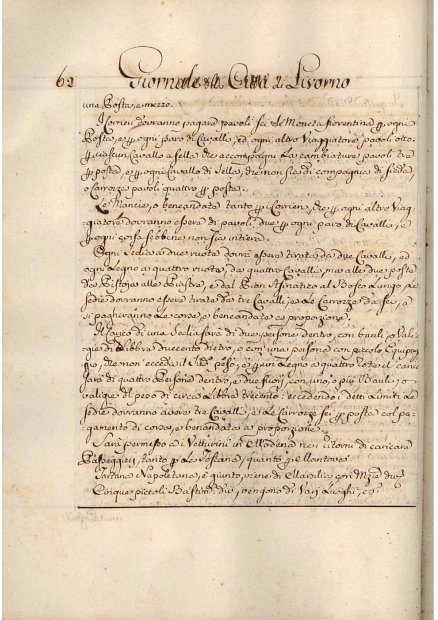 62 Giornale della Città di Livorno
una Posta, e mezzo.
I Corrieri dovranno pagare pavoli sei di Moneta fiorentina ogni
Posta, e ogni paro di Cavalli, ed ogni altro Viaggiatore pavoli otto
e ciascun Cavallo a sella che accompagni La cambiatura pavoli tre
posta, e ogni Cavallo di sella, che non sia di compagnia di sedia,
o Carrozza pavoli quattro posta.
Le Mancie, o benandate tanto i Corrieri, che ogni altro Viag-
giatore dovranno essere di pavoli due ogni paro di Cavalli, e
ogni corsa sebbene non sia intiera.
Ogni sedia a due ruote dovrà essere tirata da due Cavalli, ed
ogni Legno a quattro ruote, da quattro Cavalli, ma alle due poste
da Pistoja alle Piastre, e dal Pian Asinatico al Bosco Lungo, Le
sedie dovranno essere tirate da tre Cavalli, e Le Carrozze da sei, e
si pagheranno Le corse, e benandate a proporzione.
Il carico di una Sedia sarà di due persone dentro, con bauli, o Vali-
gie di Libbre duecento dietro, o con una persona con piccolo Equipag-
gio, che non ecceda il peso, e in Legno a quattro ruote il cari-
sarà di quattro Persone dentro, e due fuori, con uno, o più Baule, o
valigie del peso di circa Libbre trecento: eccedendo i detti Limiti Le
sedie dovranno avere tre Cavalli, e Le Carrozze sei posta col pa-
gamento di corse, e benandate a proporzione.
Sarà permesso a Vetturini di Modena nei ritorni di caricare
Passeggieri, tanto La Toscana, quanto Mantova.
Tartana Napolitana, è giunto, viene di Marsilia con
Cinque piccoli Bastim. vengono di Varj Luoghi,